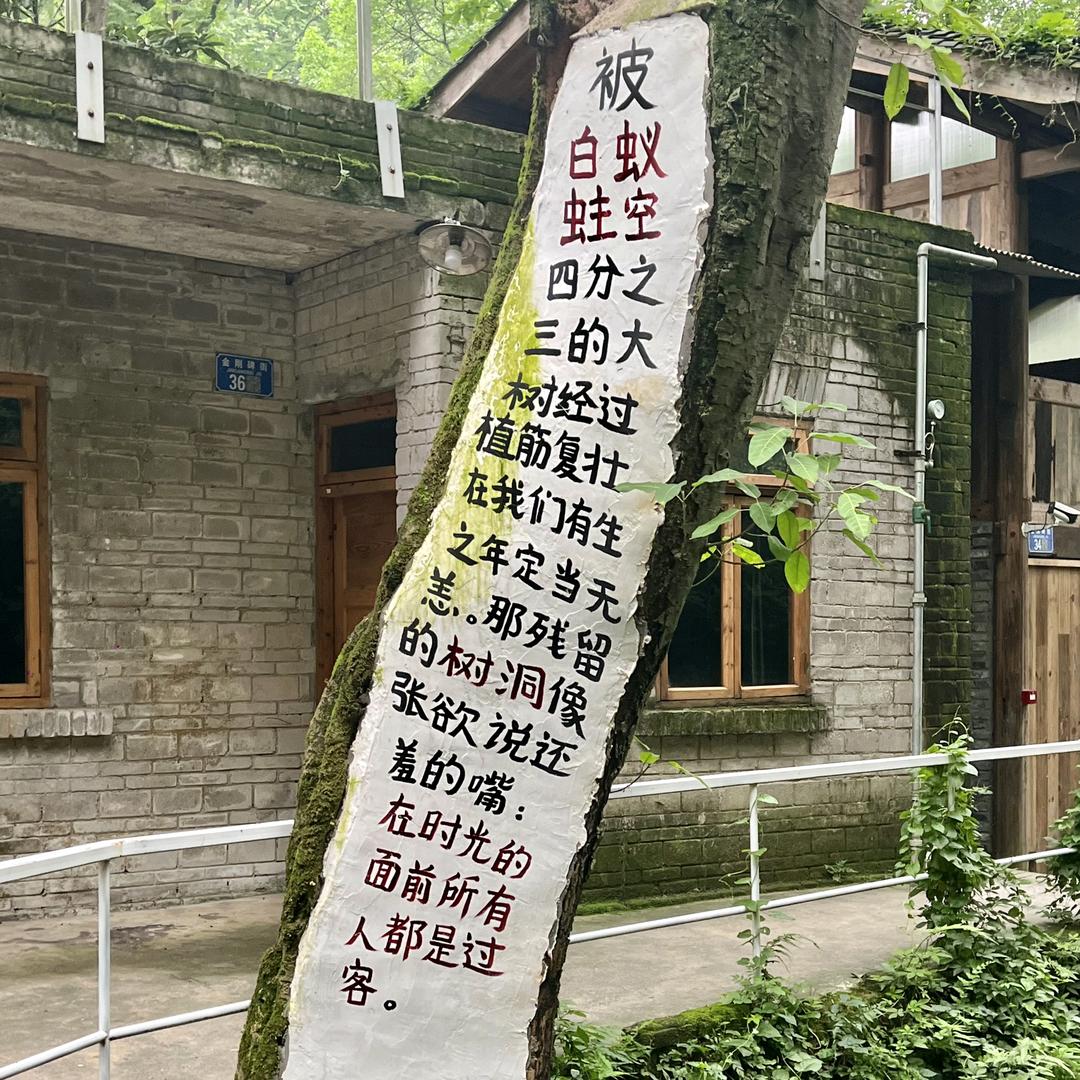 被
白蚁
蛀空
四分之
三的大
树经过
植筋复壮
在我们有生
之年定当无
恙。那残留
的树洞像
张欲说还
羞的嘴：
在时光的
面前所有
人都是过
客。
金刚碑街
36
34